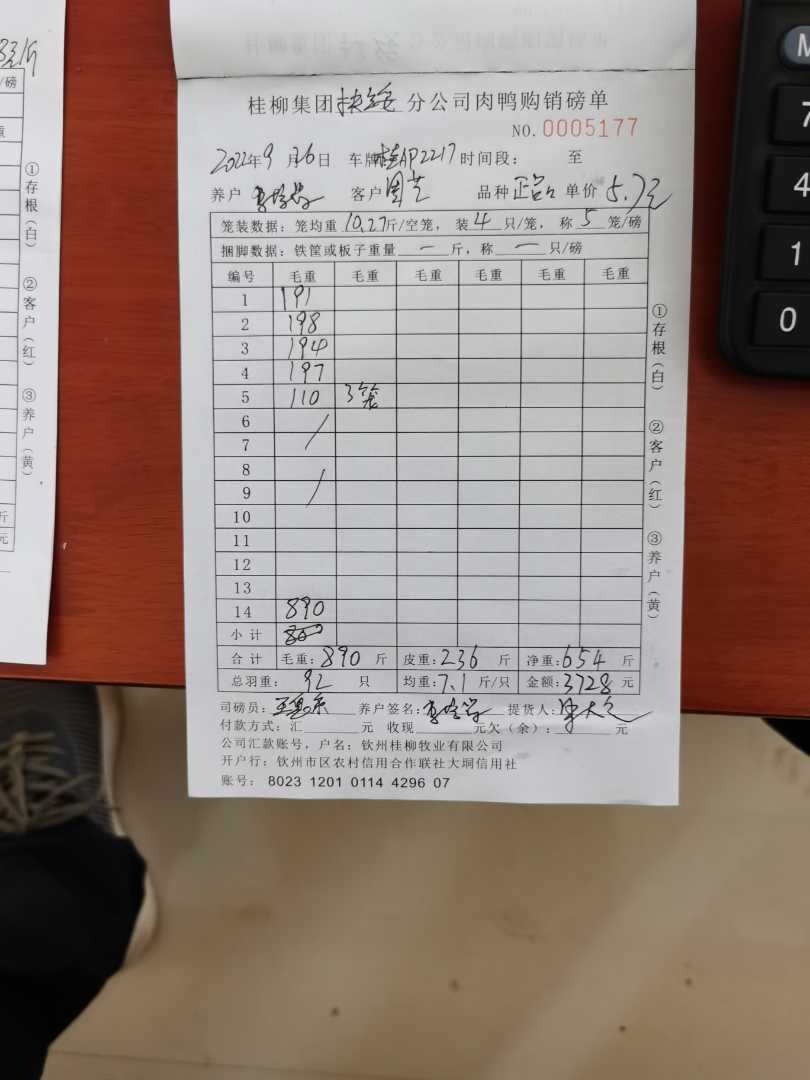 桂柳集团 分公司肉鸭购销磅单
NO.0005177
2022年9月26日 车牌桂AP2217时间段: 至
养户 客户 周芝 品种 正品 单价 5.7元
笼装数据:笼均重 10.27斤/空笼,装 4 只/笼,称 5 笼/磅
捆脚数据:铁筐或板子重量 一 斤,称 一 只/磅
编号 毛重 毛重 毛重 毛重 毛重 毛重
1 191
2 198
3 194
4 197
5 110 3笼
6
7
8
9
10
11
12
13
14 890
小计
合计 毛重:890 斤 皮重:236 斤 净重:654 斤
总羽重: 92 只 均重:7.1 斤/只 金额:3728 元
司磅员: 养户签名: 提货人:
付款方式:汇 元 收现 元欠(余): 元
公司汇款账号,户名:钦州桂柳牧业有限公司
开户行:钦州市区农村信用合作联社大垌信用社
账号: 8023 1201 0114 4296 07
①存根(白) ②客户(红) ③养户(黄)
①存根(白) ②客户(红) ③养户(黄)
/磅
斤
元
M
7
4
1
0